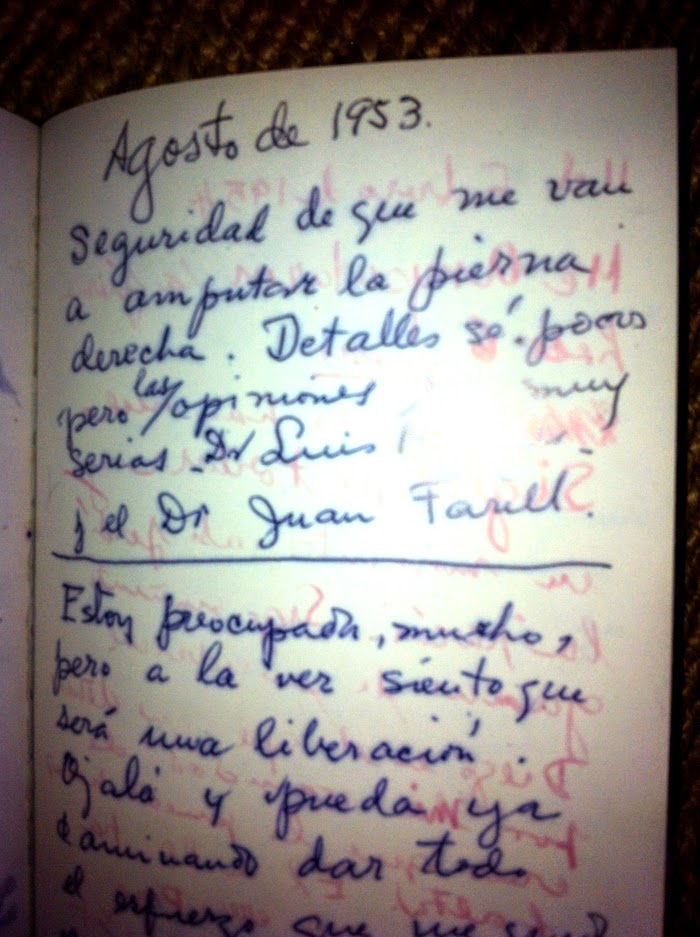 Agosto de 1953.
Seguridad de que me van
a amputar la pierna
derecha. Detalles sé pocos
pero las opiniones muy
serias. Dr Luis
y el Dr Juan Farill.
Estoy preocupada, mucho,
pero a la vez siento que
será una liberación.
Ojalá y pueda ya
caminando dar todo
el esfuerzo que me